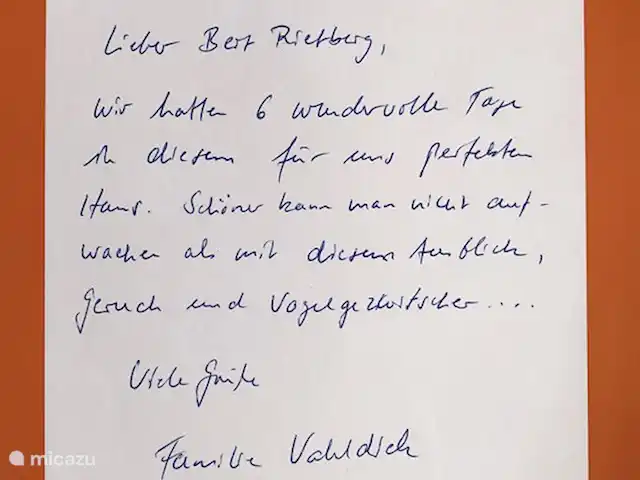 Lieber Bert Rietberg,
wir hatten 6 wundervolle Tage
in diesem für uns perfekten
Haus. Schöner kann man nicht auf-
wachen als mit diesem Ausblick,
Geruch und Vogelgezwitscher....
Viele Grüße
Familie Vahldiek
micazu